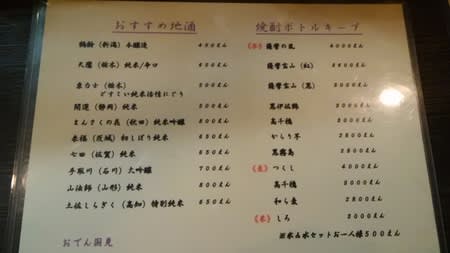 おすすめ地酒
鶴齢（新潟）本醸造 450えん
天鷹（栃木）純米/辛口 450えん
東力士（栃木）
どすこい純米活性にごり 500えん
開運（静岡）純米 500えん
まんさくの花（秋田）純米吟醸 800えん
来福（茨城）初しぼり純米 550えん
七田（佐賀）純米 550えん
手取川（石川）大吟醸 700えん
山法師（山形）純米 500えん
土佐しらぎく（高知）特別純米 550えん
おでん国見
焼酎ボトルキープ
《芋》 薩摩の風 4000えん
薩摩宝山（紅） えん
薩摩宝山（黒） えん
黒伊佐錦 えん
高千穂 えん
からり芋 2500えん
黒霧島 2800えん
《麦》 つくし 4000えん
高千穂 3000えん
和ら麦 2500えん
《米》 しろ 3000えん
※氷&水セットお一人様500えん